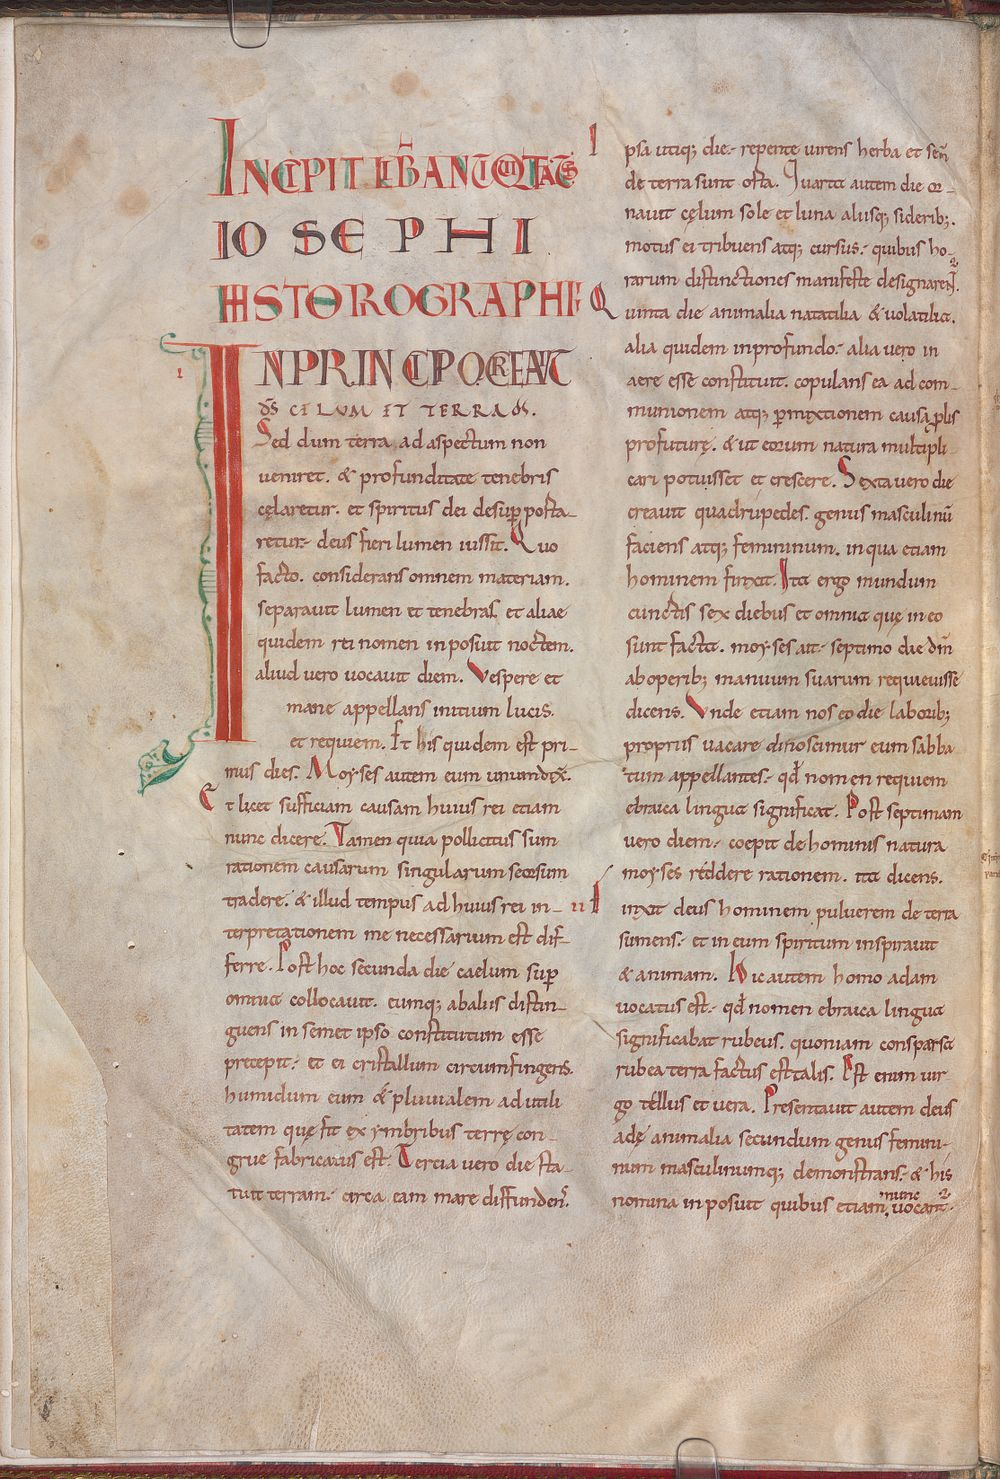 INCIPIT LIB ANTIQUITATIS
IOSEPHI
HISTORIOGRAPHI
IN PRINCIPIO CREAVIT
ds CELUM ET TERRAM ds.
1
Sed dum terra, ad aspectum non
veniret. & profunditate tenebris
cęlaretur. et spiritus dei desup porta-
retur. deus fieri lumen iussit. Quo
facto. considerans omnem materiam.
separavit lumen et tenebras. et aliae
quidem rei nomen inposuit noctem.
aliud vero vocavit diem. Vespere et
mane appellans initium lucis.
et requiem. Et his quidem est pri-
mus dies. Moyses autem eum unum dix.
Et licet sufficiam causam huius rei etiam
nunc dicere. Tamen quia pollicitus sum
rationem causarum singularum seorsum
tradere. & illud tempus ad huius rei in-
terpretationem me necessarium est dif-
ferre. Post hoc secunda die caelum sup
omnia collocavit. eumq; ab aliis distin-
guens in semet ipso constitutum esse
precepit. et ei cristallum circumfingens.
humidum eum & pluuialem ad utili
tatem quę fit ex ymbribus terrę con-
grue fabricatus est. Tercia vero die sta-
tuit terram. circa eam mare diffundens.
Ipsa utiq; die. repente virens herba et sem
de terra sunt orta. Quarta autem die or-
navit cęlum sole et luna aliisq; siderib;.
motus ei tribuens atq; cursus. quibus ho-
rarum distinctiones manifeste designarent.
Quinta die animalia natatilia & volatilia.
alia quidem in profundo. alia vero in
aere esse constituit. copulans ea ad com-
munionem atq; pmixtionem causa plis
profuturę. & ut eorum natura multipli
cari potuisset et crescere. Sexta vero die
creavit quadrupedes. genus masculinū
faciens atq; femininum. in qua etiam
hominem finxit. Ita ergo mundum
cunctis sex diebus et omnia quę in eo
sunt facta. moyses ait. septimo die dnm
ab operib; manuum suarum requieuisse
dicens. Unde etiam nos eo die laborib;
propriis vacare dinoscimur eum sabba
tum appellantes. qd nomen requiem
ebraica lingua significat. Post septimam
vero diem. coepit de hominis natura
moyses reddere rationem. ita dicens.
11 Finxit deus hominem pulverem de terra
sumens. et in eum spiritum inspiravit
& animam. Hic autem homo adam
vocatus est. qd nomen ebraica lingua
significabat rubeus. quoniam conspersa
rubea terra factus est talis. Est enim vir
go tellus et vera. Presentavit autem deus
adę animalia secundum genus femini-
num masculinumq; demonstrans. & his
nomina inposuit quibus etiam nunc vocant.